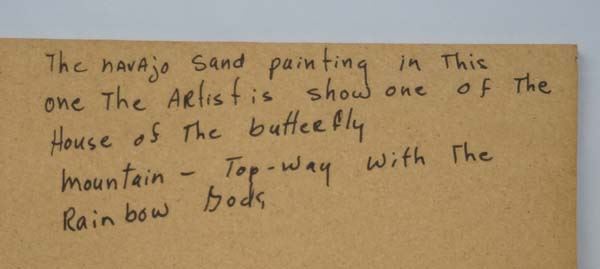 The navajo sand painting in This
one The Artist is show one of The
House of The butterfly
mountain - Top-way with The
Rainbow Gods